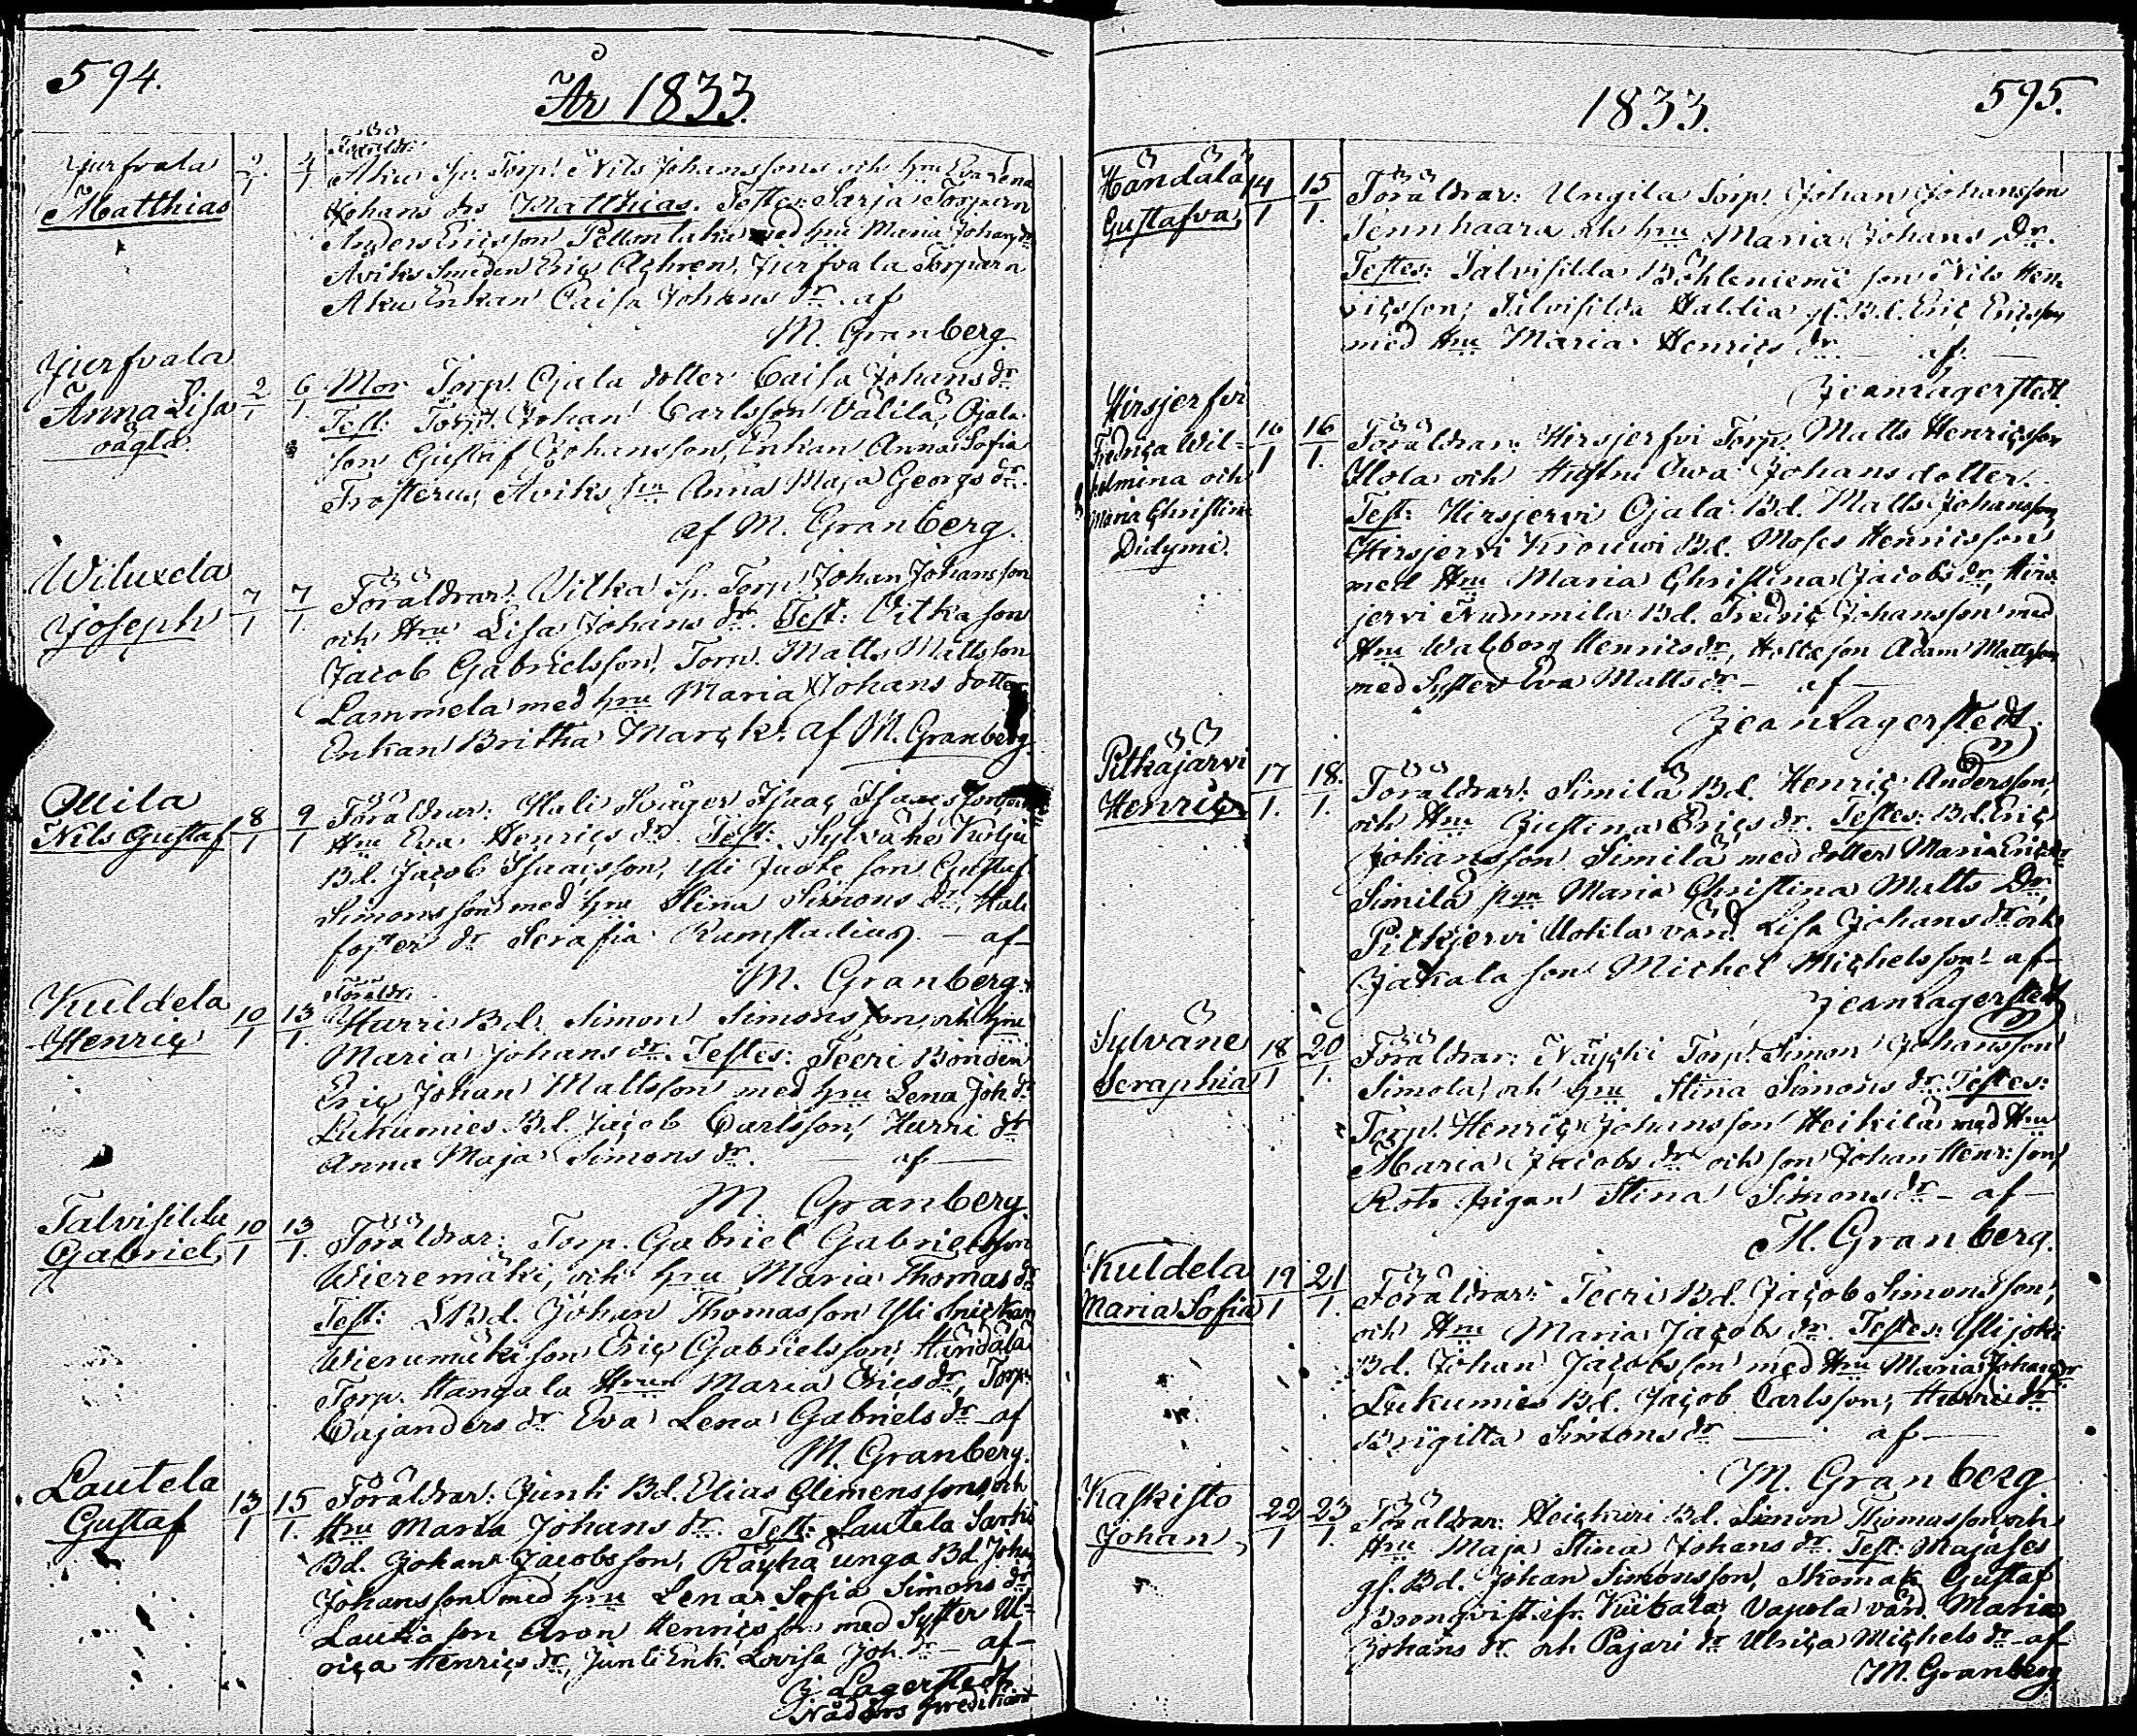 594.
År 1833.
Jurfvala
Matthias
2/1. 4/1.
Föräldr:
Aku Sp. Torp. Nils Johansson och hru Eva Lena
Johans dr Matthias. Testes: Sarja Torparn
Anders Ericsson Pellonlaka med hru Maria Johans dr
Aviks Smeden Eriç Aghren, Jurfvala Torparn
Aku Enkan Caisa Johans dr. af
M. Granberg.
Jurfvala
Anna Lisa
oägta.
2/1 6/1.
Mor Torp. Ojala dotter Caisa Johans dr
Test: Torp. Johan Carlsson Välilä, Ojala
son Gustaf Johansson, Enkan Anna Sofia
Trosterus, Aviks hru Anna Maja Georgs dr.
af M. Granberg.
Wiluxela
Joseph
7/1 7/1.
Föräldrar: Vitka Sp. Torp. Johan Johansson
och Hru Lisa Johans dr. Test: Vitka son
Jacob Gabrielsson, Torp. Matts Mattsson
Lammela med hru Maria Johans dotter
Enkan Britha Marçk. af M. Granberg.
Ollila
Nils Gustaf
8/1 9/1
Föräldrar: Hali Svåger Isaaç Isaacsson
Hru Eva Henriçs dr. Test: Sylväne Kurju
Bd. Jaçob Isaaçsson, Yli Juste son Gustaf
Simonsson med hru Stina Simons dr, Hali
foster dr Serafia Rumstadius. — af —
M. Granberg.
Kuldela
Henriç
10/1 13/1.
Föräldr.
Hurri Bd. Simon Simonsson, och hru
Maria Johans dr. Testes: Teeri Bonden
Eriç Johan Mattsson med hru Lena Joh. dr
Lukumies Bd. Jaçob Carlsson, Hurri dr
Anna Maja Simons dr. — af —
M. Granberg.
Talvisilda
Gabriel
10/1 13/1.
Föräldrar: Torp. Gabriel Gabrielsson
Wieremäki, och hru Maria Thomas dr
Test: Bd. Johan Thomasson Yli
Wierumäki son Eriç Gabrielsson, Händälä
Torp. Hangala Hrun Maria Eriçs dr, Torp.
Cajanders dr Eva Lena Gabriels dr — af
M. Granberg.
Lautela
Gustaf
13/1 15/1.
Föräldrar: Junti Bd. Elias Clemensson, och
Hru Maria Johans dr. Test: Lautela Sarki
Bd. Johan Jacobsson, Räyhä unga Bd. Joh.
Johansson med hru Lena Sofia Simons dr
Lautia son Aron Henriçsson med Syster Ul-
riça Henriçs dr, Junti Enk. Lovisa Joh. dr — af —
J. Lagerstedt.
Nådårs Predikant
1833.
595.
Händälä
Gustafva
14/1 15/1.
Föräldrar: Ungila Torp. Johan Johansson
Tennhaara och hru Maria Johans Dr.
Testes: Talvisilda Böhleniemi son Nils Hen-
riçsson, Talvisilda Haldia gl. Bd. Eriç Ericsson
med Hru Maria Henriçs dr. — af —
Jean Lagerstedt.
Hirsjerfvi
Fredriça Wil-
helmina och
Maria Christina
Didymi.
16/1 16/1.
Föräldrar: Hirsjerfvi Torp. Matts Henriçsson
Ilola och Hustru Ewa Johans dotter.
Test: Hirsjervi Ojala Bd. Matts Johansson
Hirsjervi Krouwi Bd. Moses Henricsson
med Hru Maria Christina Jacobs dr, Hirs-
jervi Nummila Bd. Fredriç Johansson med
Hru Walborg Henrics dr, son Adam Mattsson
med Syster Eva Matts dr — af —
Jean Lagerstedt.
Pitkäjärvi
Henriç
17/1. 18/1.
Föräldrar: Similä Bd. Henriç Andersson,
och Hru Justina Eriçs dr. Testes: Bd. Eriç
Johansson Similä med dotter Maria Eriçs dr
Similä pgn Maria Christina Matts Dr,
Pitkjervi Uotila värd. Lisa Johans dr och
Jakala son Michel Michelsson — af —
Jean Lagerstedt
Sylväne
Seraphia
18/1 20/1.
Föräldrar: Näyçki Torp. Simon Johansson
Simola, och hru Stina Simons dr. Testes:
Torp. Henriç Johansson Heikilä med Hru
Maria Jacobs dr och son Johan Henr: son,
Roto pigan Stina Simons dr — af —
M. Granberg.
Kuldela
Maria Sofia
19/1 21/1.
Föräldrar: Teeri Bd. Jaçob Simonsson,
och Hru Maria Jaçobs dr. Testes: Ylijoki
Bd. Johan Jaçobsson med Hru Maria Johans dr
Lukumies Bd. Jaçob Carlsson, Hurri dr
Brigitta Simons dr — af —
M. Granberg.
Kaskisto
Johan
22/1 23/1.
Föräldrar: Heickuri Bd. Simon Thomasson och
Hru Maja Stina Johans dr. Test: Majases
gl. Bd. Johan Simonsson, Skomak. Gustaf
Bronqvist ifr. Kutala, Vapola värd. Maria
Johans dr och Pajari dr Ulriça Michels dr — af —
M. Granberg